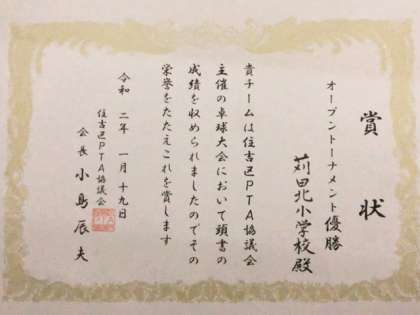 賞状
オープントーナメント優勝
苅田北小学校殿
貴チームは住吉区PTA協議会
主催の卓球大会において頭書の
成績を収められましたのでその
栄誉をたたえこれを賞します
令和二年一月十九日
住吉区PTA協議会
会長 小島辰夫